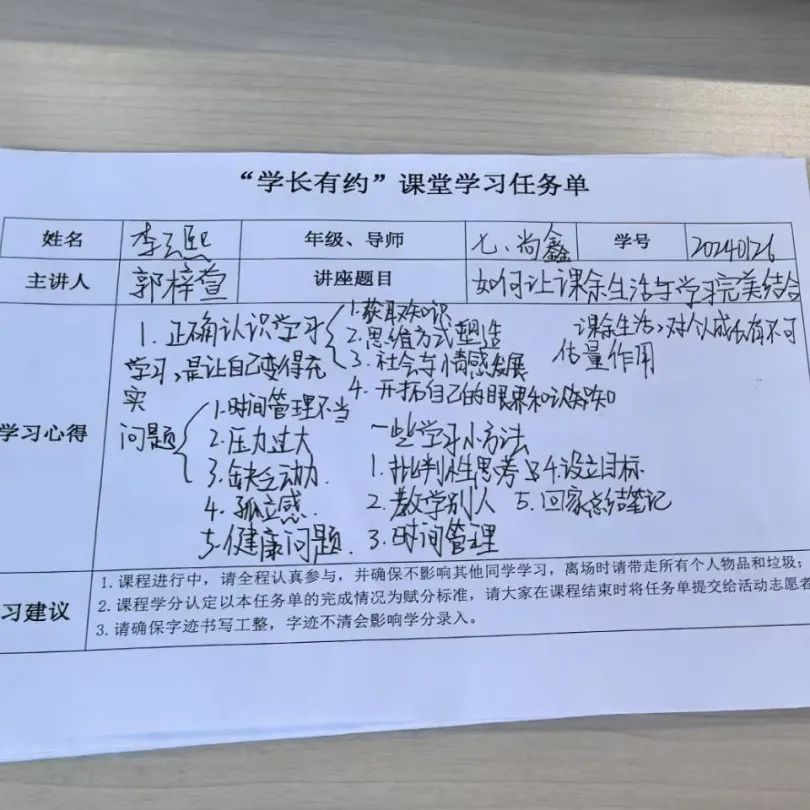 “学长有约”课堂学习任务单
姓名 李云熙 年级、导师 七、尚鑫 学号 20240126
主讲人 郭梓萱 讲座题目 如何让课余生活与学习完美结合
学习心得
1. 正确认识学习
1. 获取知识
2. 思维方式塑造
3. 社会与情感发展
4. 开拓自己的眼界和认知
学习，是让自己变得充
实
课余生活，对个人成长有不可
估量作用
问题
1. 时间管理不当
2. 压力过大
3. 缺乏动力.
4. 孤立感.
5. 健康问题.
一些学习小方法
1. 批判性思考
2. 教学别人
3. 时间管理
4. 设立目标.
5. 回家总结笔记
习建议
1. 课程进行中，请全程认真参与，并确保不影响其他同学学习，离场时请带走所有个人物品和垃圾；
2. 课程学分认定以本任务单的完成情况为赋分标准，请大家在课程结束时将任务单提交给活动志愿者
3. 请确保字迹书写工整，字迹不清会影响学分录入。